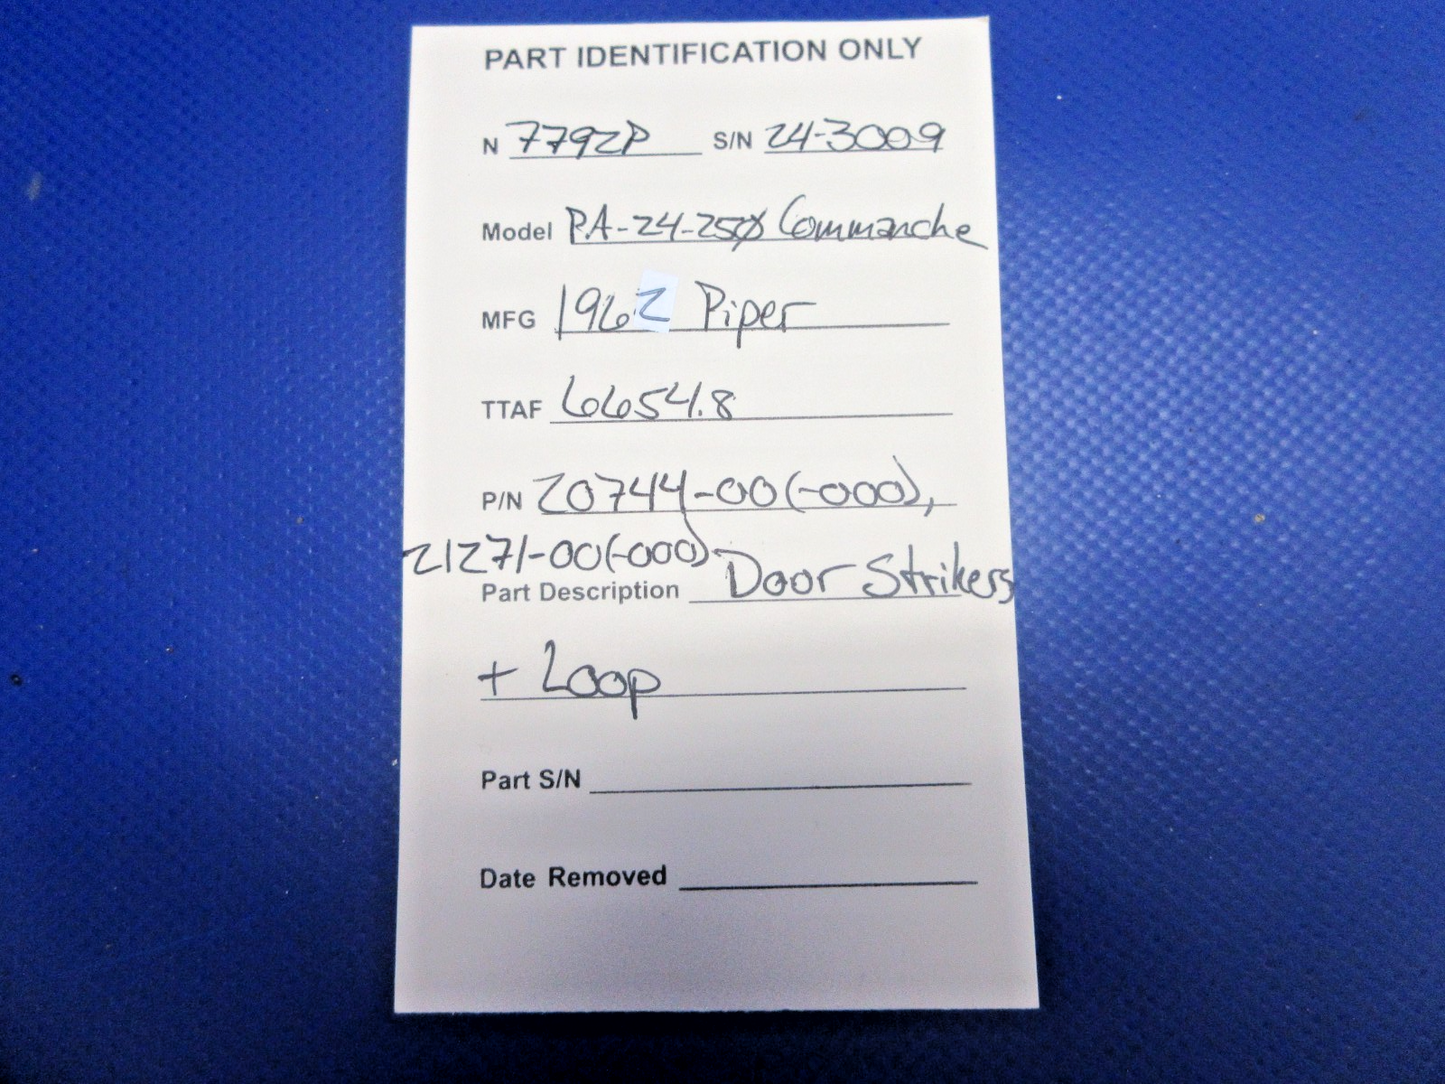 PART IDENTIFICATION ONLY
N 7792P S/N 24-3009
Model PA-24-250 Commanche
MFG 1962 Piper
TTAF 6654.8
P/N 20744-00(-000),
21271-00(-000)
Part Description Door Strikers
+ Loop
Part S/N
Date Removed